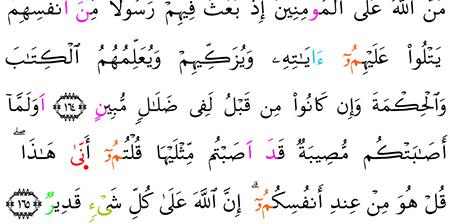 مَنَّ ٱللَّهُ عَلَى ٱلْمُومِنِينَ إِذْ بَعَثَ فِيهِمْ رَسُولًا مِنَ اَنفُسِهِمْ
يَتْلُوا۟ عَلَيْهِمُۥٓ ءَايَٰتِهِۦ وَيُزَكِّيهِمْ وَيُعَلِّمُهُمُ ٱلْكِتَٰبَ
وَٱلْحِكْمَةَ وَإِن كَانُوا۟ مِن قَبْلُ لَفِى ضَلَٰلٍ مُّبِينٍ ﴿١٦٤﴾ اَوَلَمَّآ
أَصَٰبَتْكُم مُّصِيبَةٌ قَدَ اَصَبْتُم مِّثْلَيْهَا قُلْتُمُۥٓ أَنّٜىٰ هَٰذَا ۖ
قُلْ هُوَ مِنْ عِندِ أَنفُسِكُمُۥٓ ۗ إِنَّ ٱللَّهَ عَلَىٰ كُلِّ شَىْءٍ قَدِيرٌ ﴿١٦٥﴾